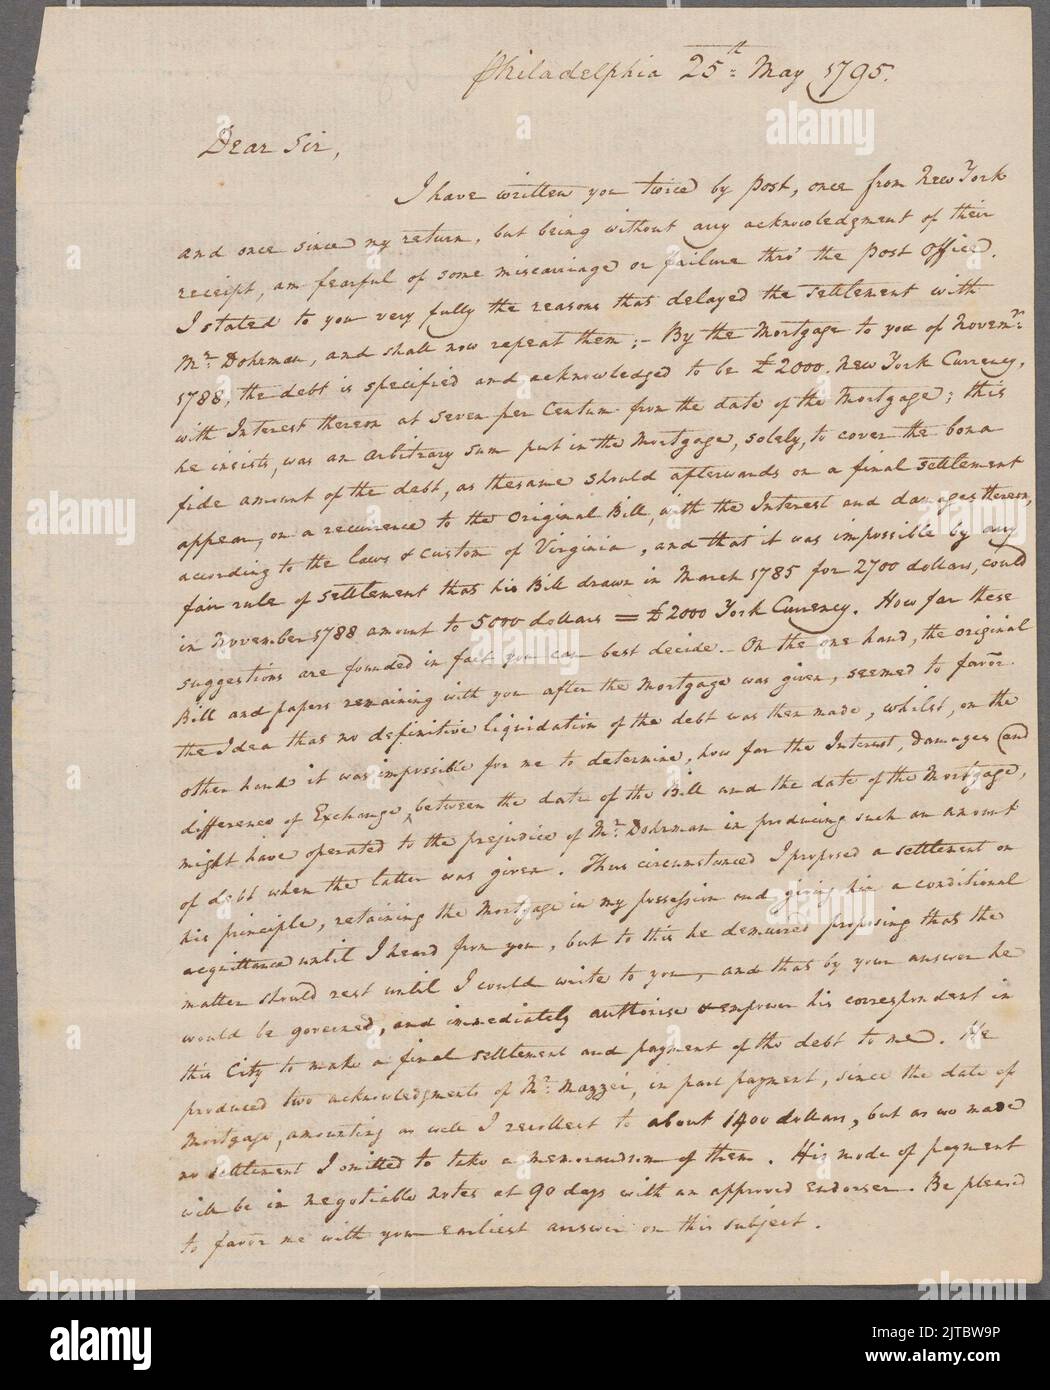 Philadelphia 25th May 1795.
Dear Sir,
I have written you twice by post, once from New York
and once since my return, but being without any acknowledgment of their
receipt, am fearful of some miscarriage or failure thro' the Post Office.
I stated to you very fully the reasons that delayed the settlement with
Mr. Dohrman, and shall now repeat them; – By the Mortgage to you of Novemr.
1788, the debt is specified and acknowledged to be £2000. New York Currency,
with Interest thereon at seven per Centum from the date of the Mortgage; this
he insists, was an arbitrary sum put in the Mortgage, solely, to cover the bona
fide amount of the debt, as the same should afterwards on a final settlement
appear, on a recurrence to the Original Bill, with the Interest and damages thereon,
according to the laws & custom of Virginia, and that it was impossible by any
fair rule of settlement that his Bill drawn in March 1785 for 2700 dollars, could
in November 1788 amount to 5000 dollars = £2000 York Currency. How far these
suggestions are founded in fact you can best decide. – On the one hand, the original
Bill and papers remaining with you after the Mortgage was given, seemed to favor
the Idea that no definitive liquidation of the debt was then made, whilst, on the
other hand it was impossible for me to determine, how far the Interest, damages (and
difference of Exchange, between the date of the Bill and the date of the Mortgage,
might have operated to the prejudice of Mr. Dohrman in producing such an amount
of debt when the latter was given. Thus circumstanced I proposed a settlement on
his principle, retaining the Mortgage in my possession and giving him a conditional
acquittance until I heard from you, but to this he demurred proposing that the
matter should rest until I could write to you, and that by your answer he
would be governed, and immediately authorise & empower his correspondent in
this City to make a final settlement and payment of the debt to me. He
produced two acknowledgments of Mr. Mazzei, in part payment, since the date of
Mortgage, amounting as well I recollect to about 1400 dollars, but as we made
no settlement I omitted to take a memorandum of them. His mode of payment
will be in negotiable notes at 90 days with an approved Endorser. Be pleased
to favor me with your earliest answer on this subject.
alamy
alamy
alamy
alamy
alamy
alamy
alamy
alamy
alamy
a
a
a
a
a
a
alamy
Image ID: 2JTBW9P
www.alamy.com